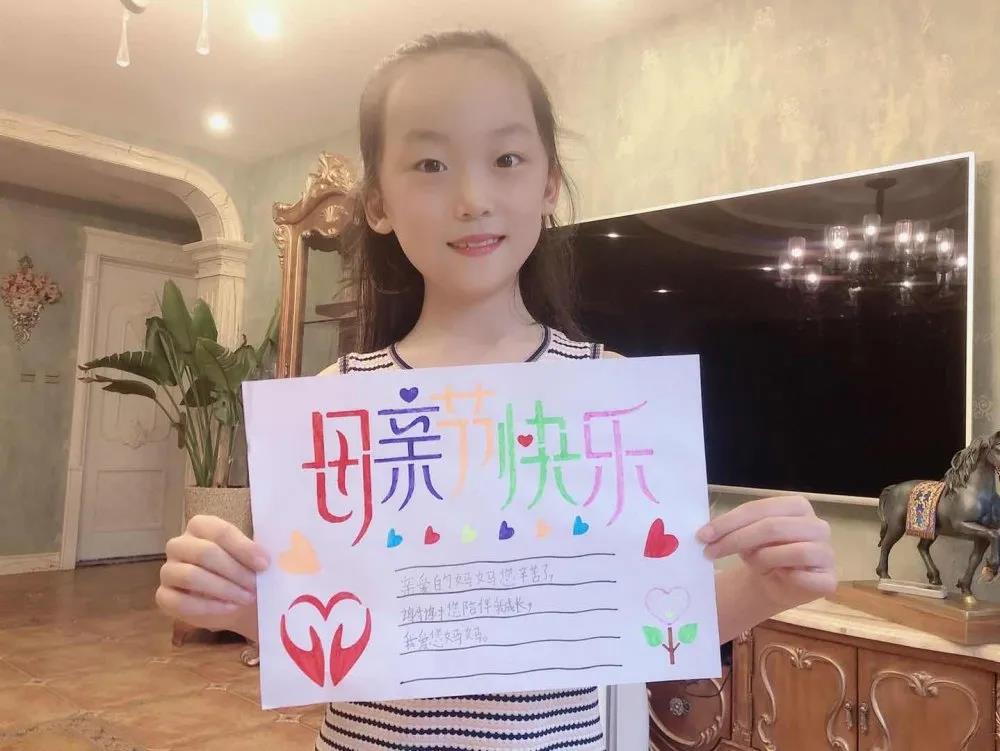 母亲节快乐
亲爱的妈妈您辛苦了,
谢谢您陪伴我成长,
我爱您妈妈。